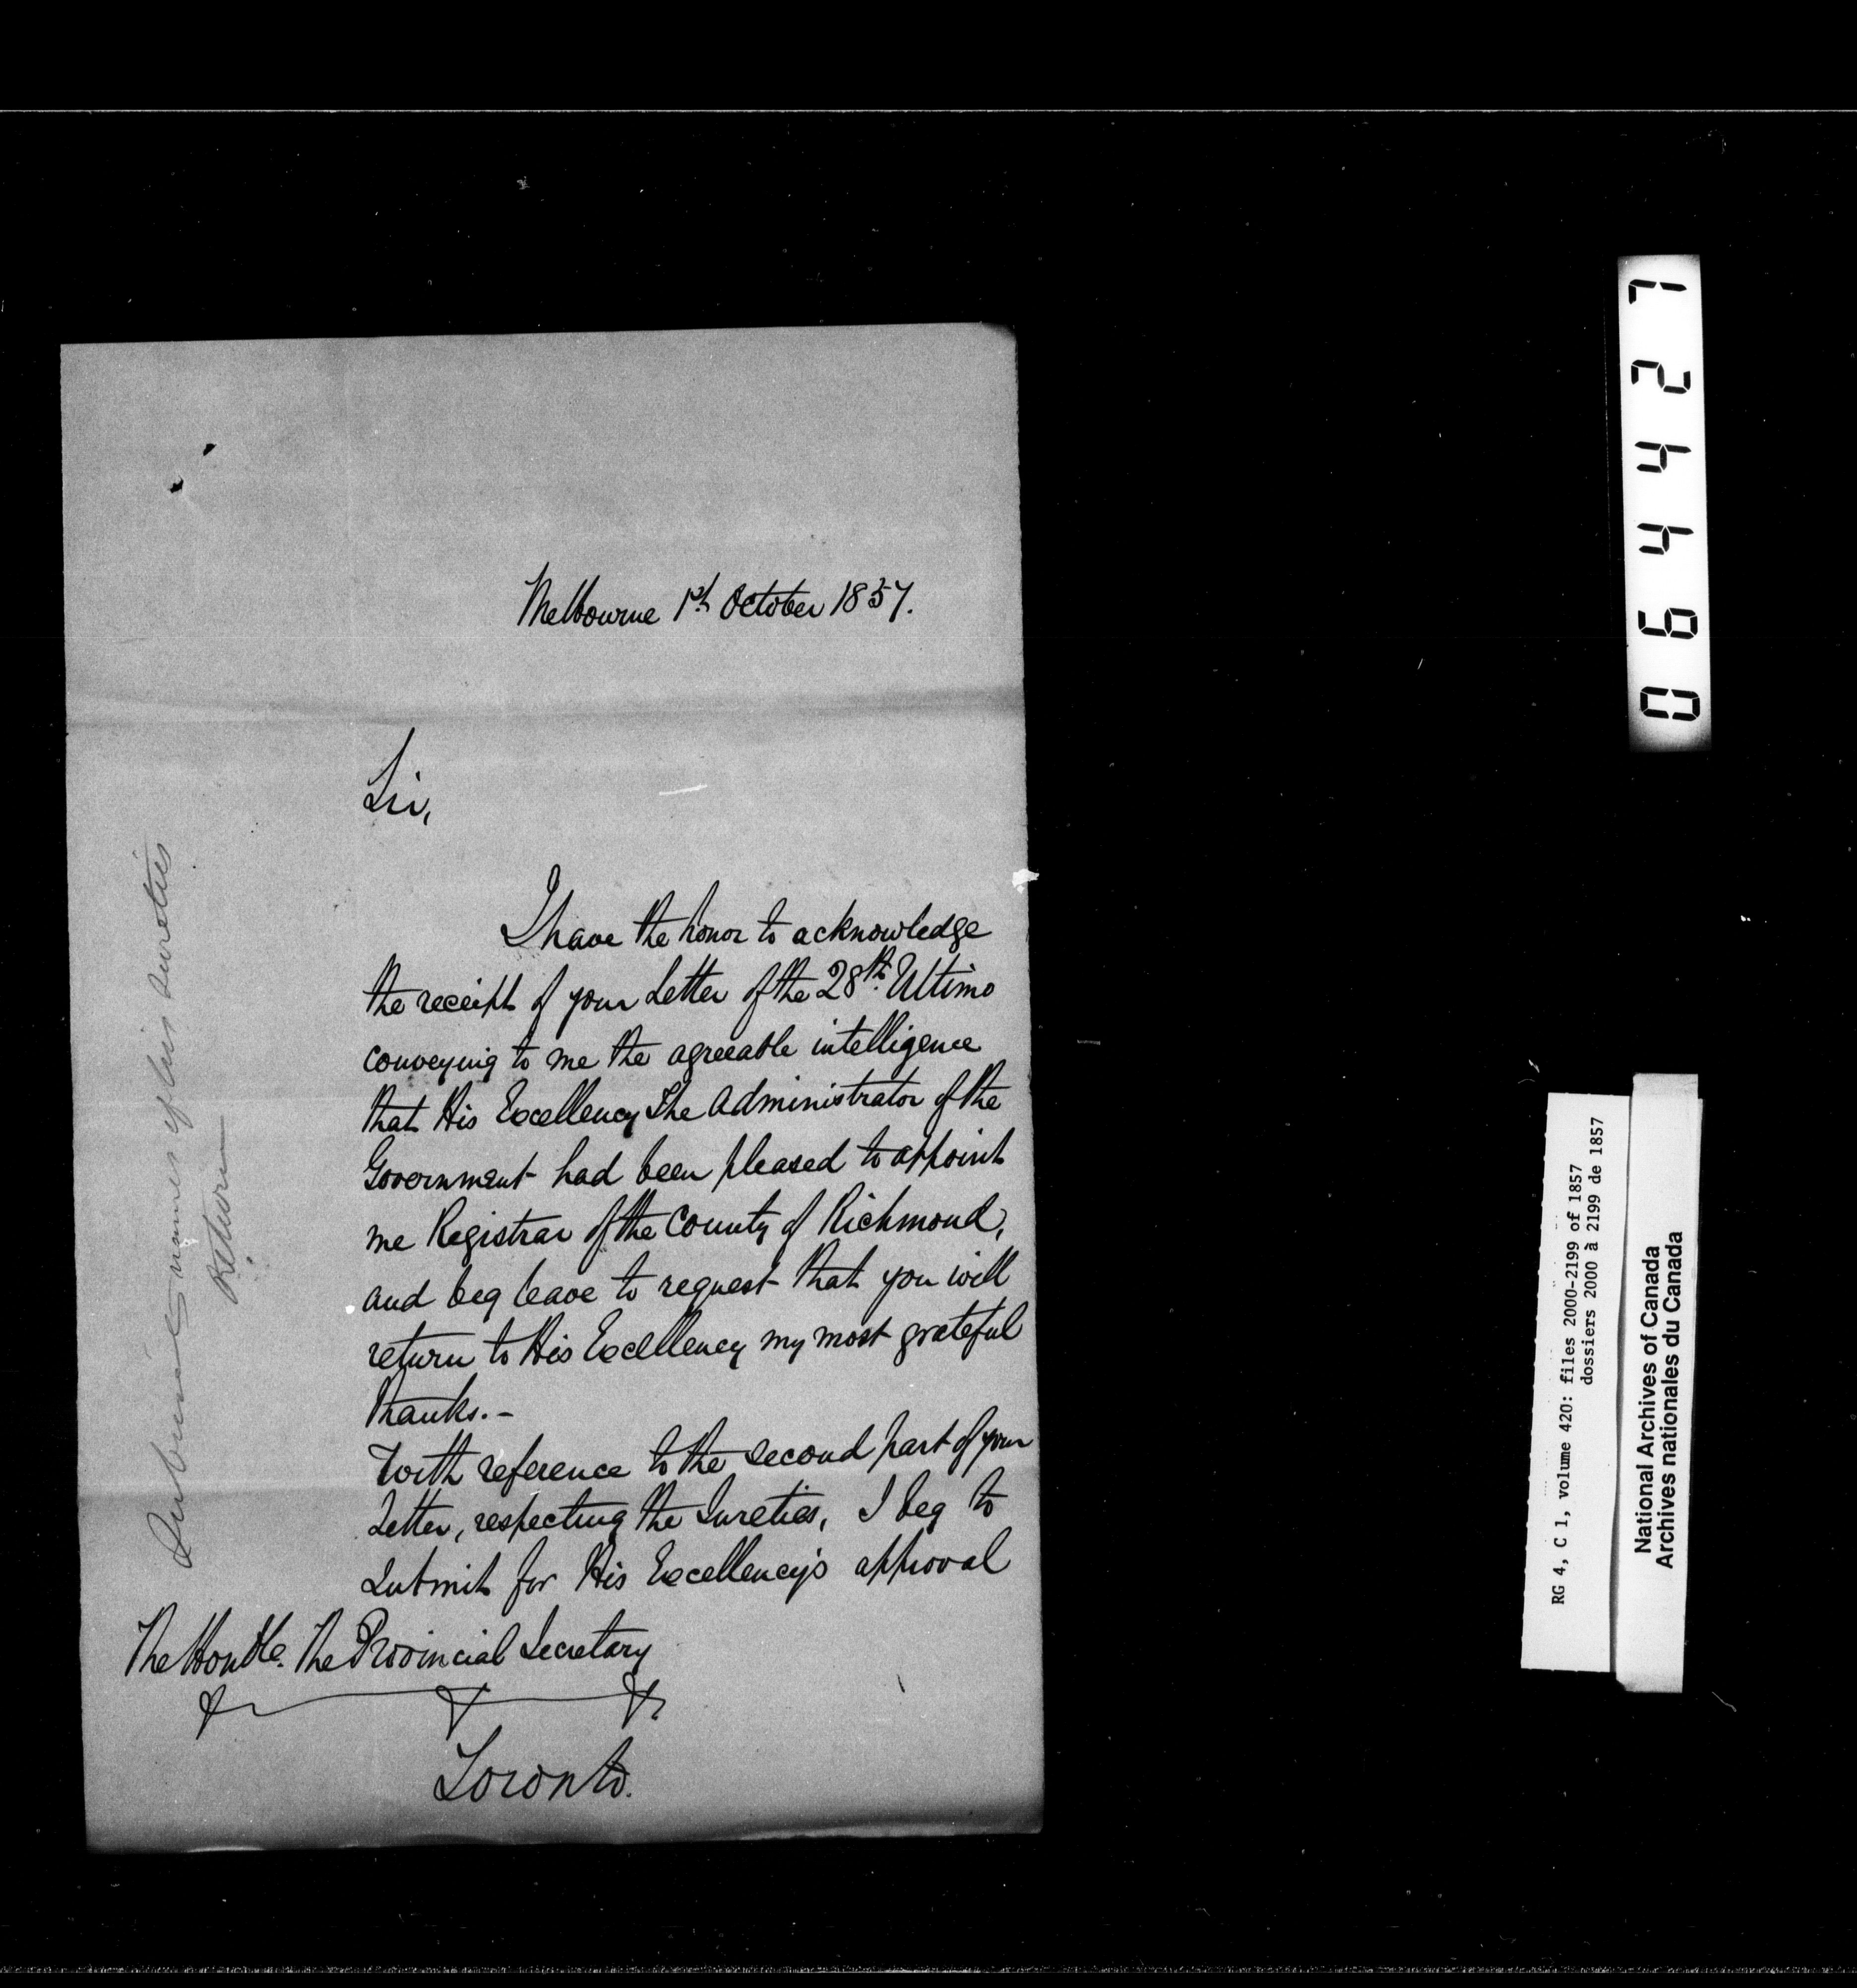 Melbourne 1st October 1857.
Sir,
I have the honor to acknowledge
the receipt of your Letter of the 28th. Ultimo
conveying to me the agreeable intelligence
that His Excellency The Administrator of the
Government had been pleased to appoint
me Registrar of the County of Richmond,
and beg leave to request that you will
return to His Excellency my most grateful
thanks.-
With reference to the second part of your
Letter, respecting the Sureties, I beg to
Submit for His Excellency's approval
The Honble. The Provincial Secretary
Toronto.
Submits names of his sureties
Return
064427
RG 4, C 1, volume 420: files 2000-2199 of 1857
dossiers 2000 à 2199 de 1857
National Archives of Canada
Archives nationales du Canada